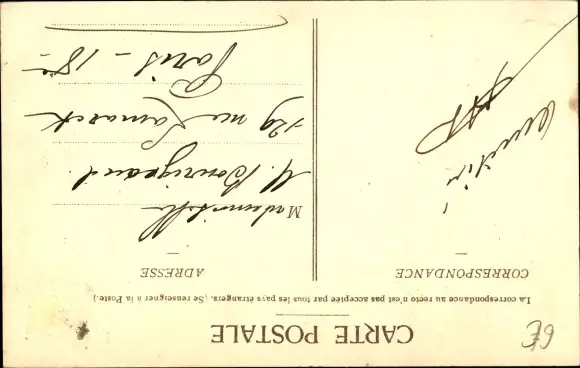 CARTE POSTALE
La correspondance au recto n'est pas acceptée par tous les pays étrangers. (Se renseigner à la Poste.)
CORRESPONDANCE
ADRESSE
Mademoiselle
M. Bourgeaud
129 rue Lamarck
Paris - 18e